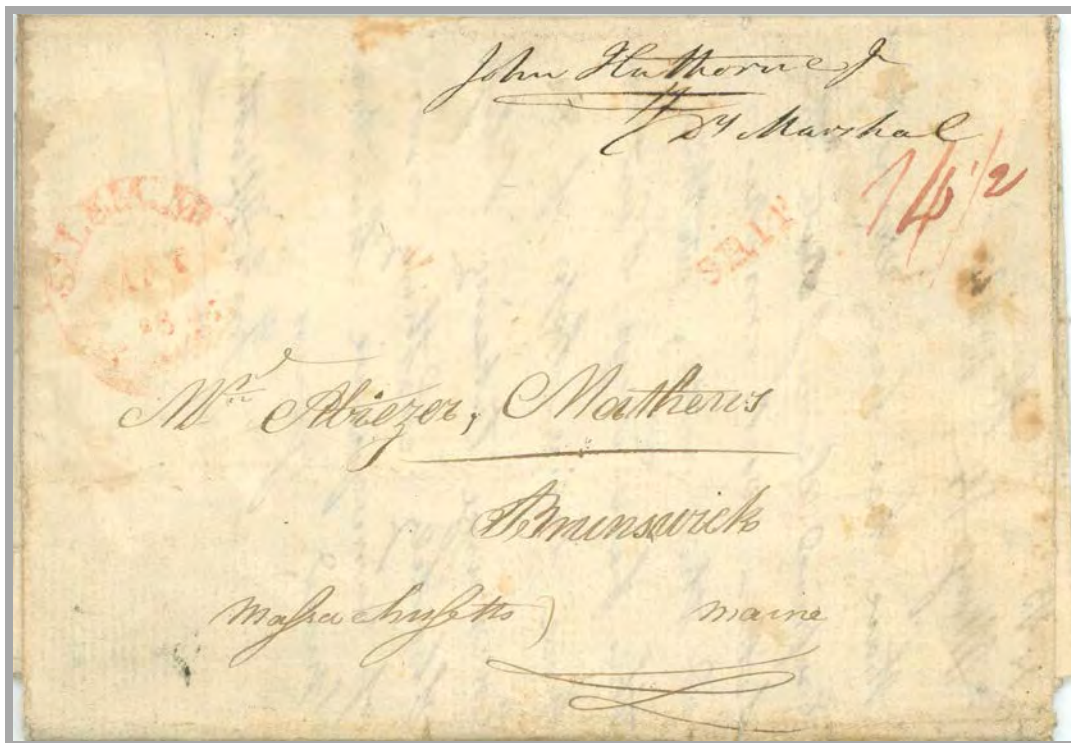 John Hathorne Jr
Dy Marshal
SALEM. MS
MAY
14 1/2
SHIP
Mr Abiezer, Mathews
Brunswick
Massachusetts) maine